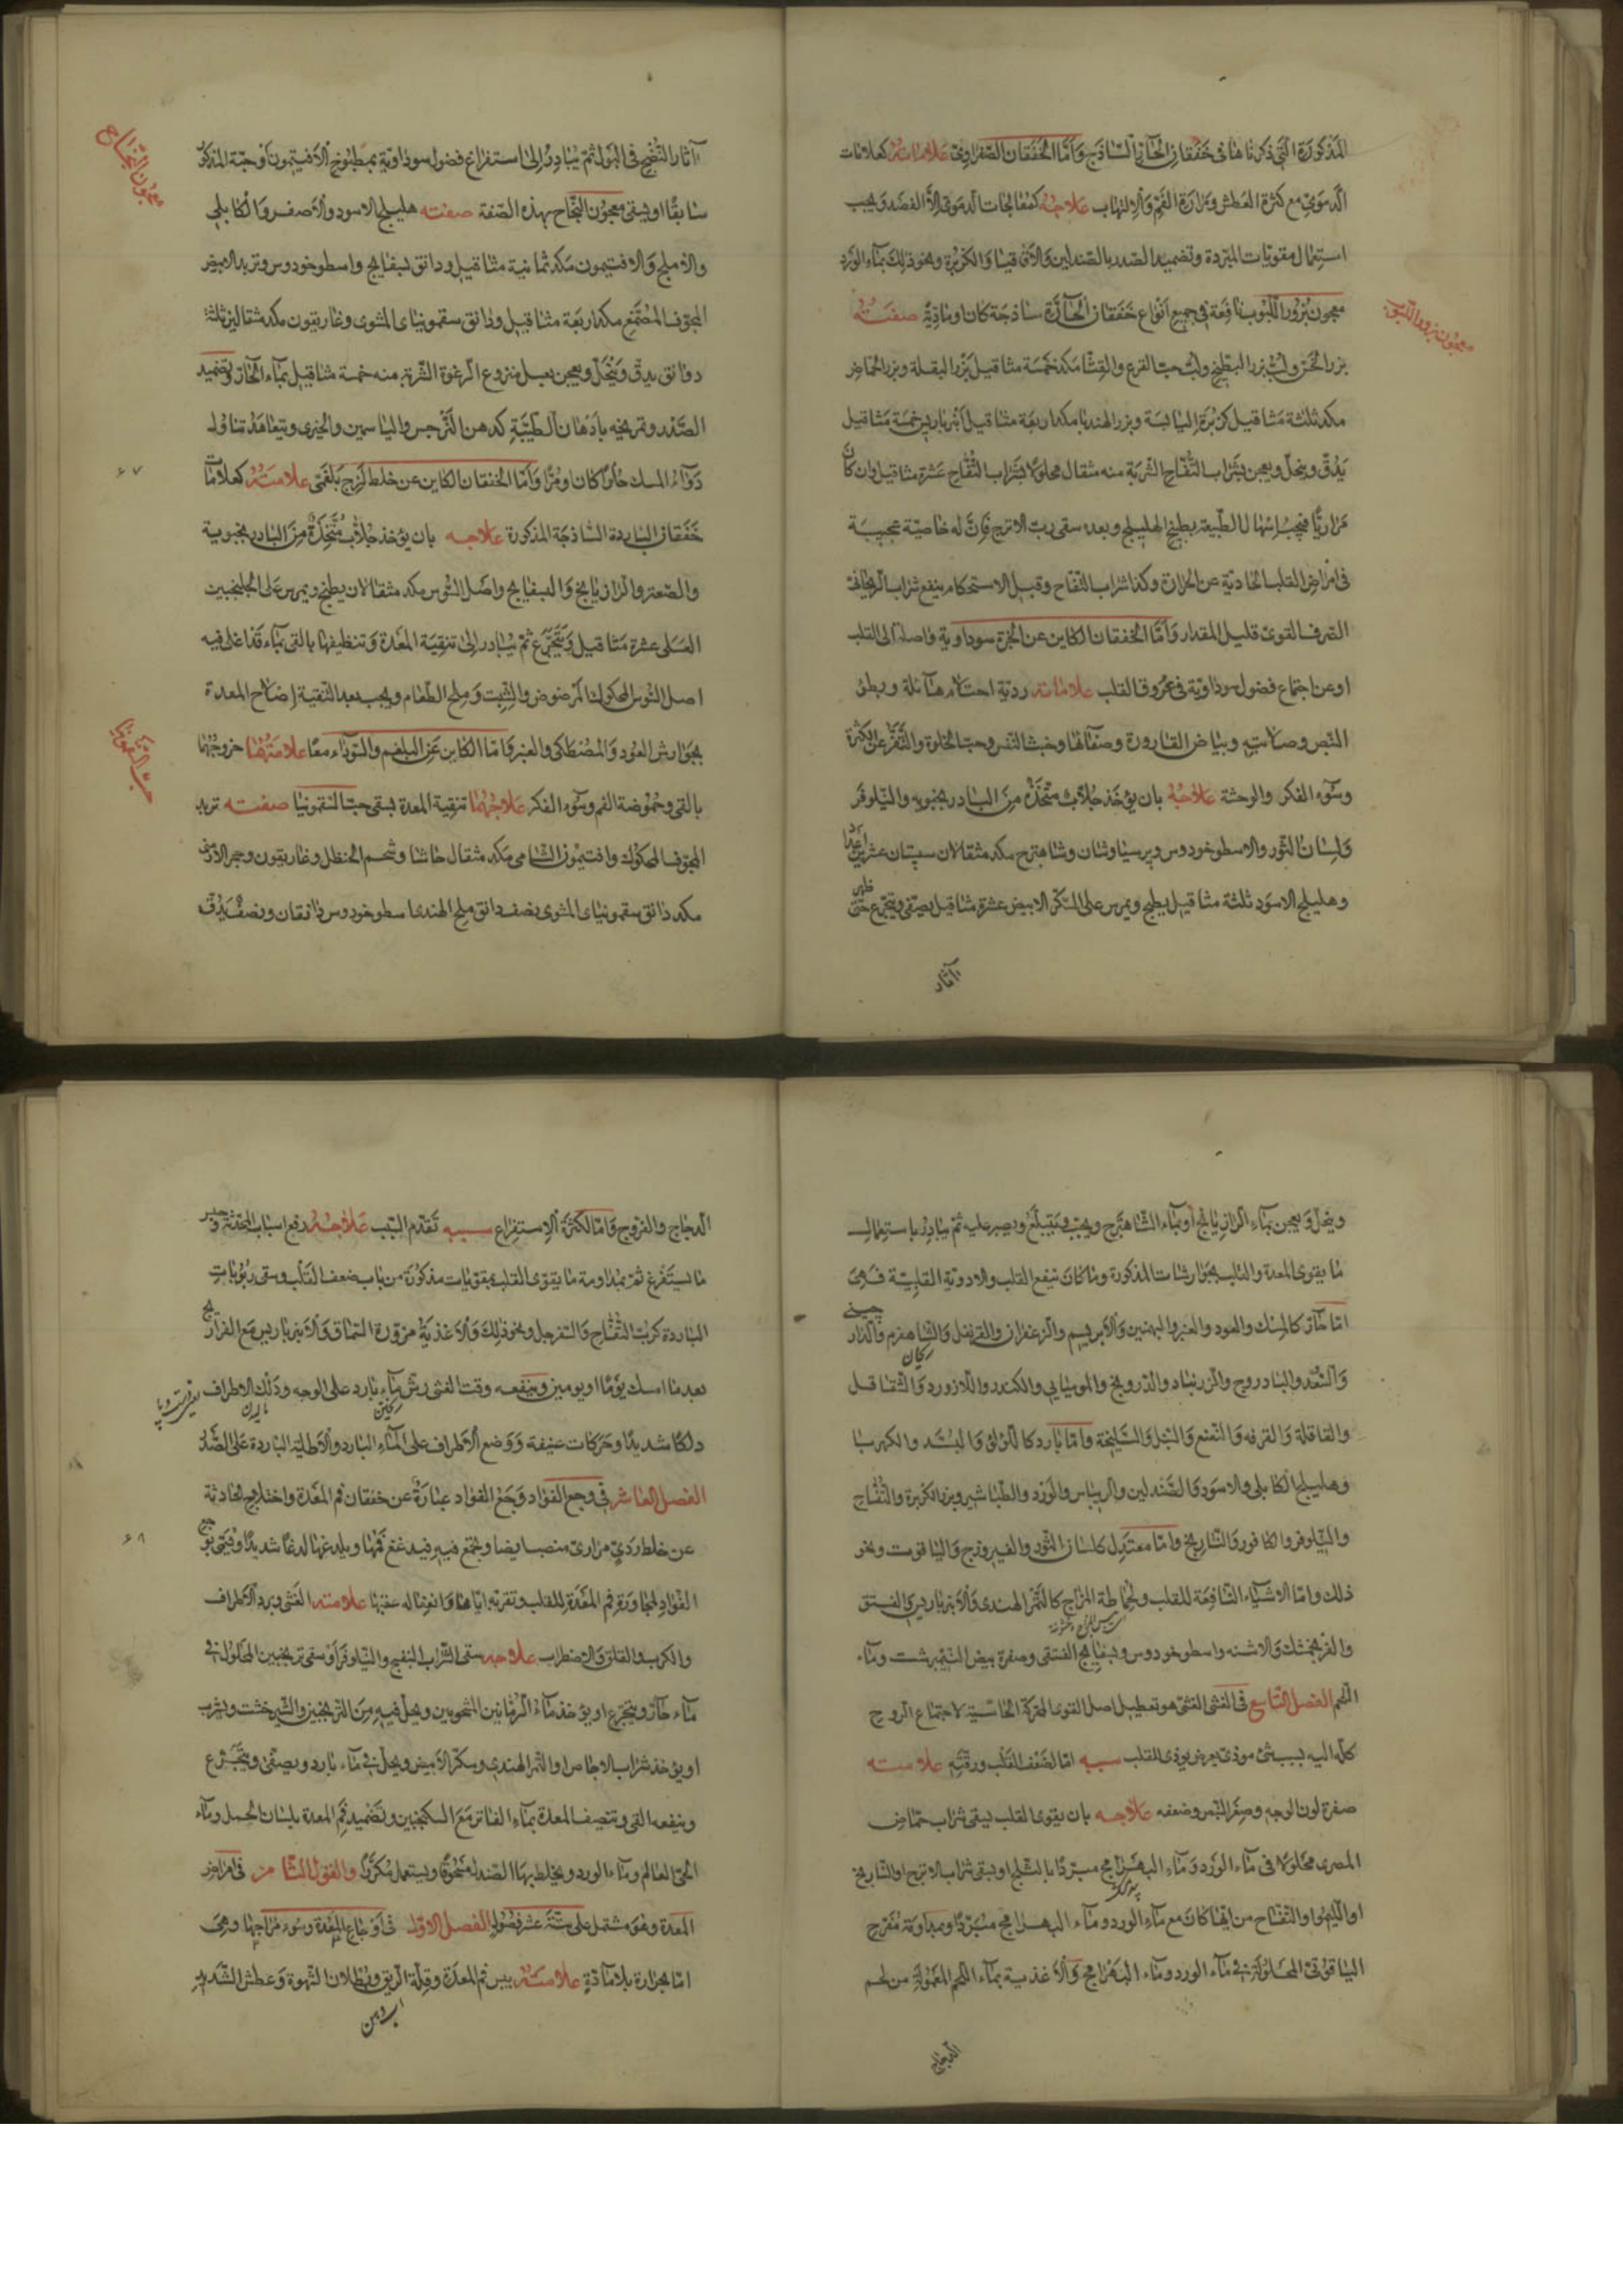 المذكورة التي ذكرناها في خفقان الحار الساذج وأما الخفقان الصفراوي علاماته كعلامات
الدموي مع كثرة العطش ومرارة الفم والالتهاب علاجه كمعالجات الدموي إلا الفصد ويجب
استعمال مقويات المبردة وتضميد الصدر بالصندلين والأقاقيا والكزبرة ونحو ذلك بماء الورد
معجون بزور اللبوب نافعة في جميع أنواع خفقان الحارة ساذجة كان او مادية صفته
بزر الخس ولب بزر البطيخ ولب حب القرع والقثا مكد خمسة مثاقيل بزر البقلة وبزر الحماض
مكد ثلثة مثاقيل كزبرة اليابسة وبزر الهندبا مكد اربعة مثاقيل أنبرباريس خمسة مثاقيل
يدق وينخل ويعجن بشراب التفاح الشربة منه مثقال محلولا بشراب التفاح عشرة مثاقيل وان كان
مراريا فيجب اسهال الطبيعة بطبيخ الهليلج وبعده سقي رب الاترج فان له خاصية عجيبة
في امراض القلب الحادثة عن الحرارة وكذا شراب التفاح وقبل الاستحكام ينفع شراب الريحاني
الصرف القوي قليل المقدار وأما الخفقان الكاين عن ابخرة سوداوية واصلة الى القلب
او عن اجتماع فضول سوداوية في عروق القلب علاماته ردية احتلام هائلة وبطؤ
النبض وصلابته وبياض القارورة وصفائها وخبث النفس وحب الخلوة والتفزع عن الكثرة
وسوء الفكر والوحشة علاجه بان يؤخذ جلاب متخذ من البادرنجبويه والنيلوفر
ولسان الثور والاسطوخودوس وبرسياوشان وشاهترج مكد مثقالان سپستان عشرين عددا
وهليلج الاسود ثلثة مثاقيل يطبخ ويمرس على السكر الابيض عشرة مثاقيل يصفى ويتجرع حتى
ظهر
آثار
معجون بزور اللبوب
آثار النضج في البول ثم يبادر إلى استفراغ فضول سوداوية بمطبوخ الأفتيمون أو حبة المذكور
سابقا او يسقى معجون النجاح بهذه الصفة صفته هليلج الاسود والأصفر والكابلي
والأملج والافتيمون مكد ثمانية مثاقيل ودانق بسفايج واسطوخودوس وتربد الابيض
المجوف المصمغ مكد اربعة مثاقيل ودانق سقمونياى المشوى وغاريقون مكد مثقالين ثلثة
دوانق يدق وينخل ويعجن بعسل منزوع الرغوة الشربة منه خمسة مثاقيل بماء الحار وتضميد
الصدر وتمريخه بأدهان الطيبة كدهن النرجس والياسمين والخيرى ويتعاهد تناوله
دواء المسك حلوا كان او مرا وأما الخفقان الكاين عن خلط لزج بلغمي علامته كعلامات
خفقان الباردة الساذجة المذكورة علاجه بان يؤخذ جلاب متخذة من البادرنجبوية
والصعتر والرازيانج والبسفايج واصل السوس مكد مثقالان يطبخ ويمرس على الجلنجبين
العسلى عشرة مثاقيل ويتجرع ثم يبادر إلى تنقية المعدة وتنظيفها بالقي بماء قد اغلى فيه
اصل السوس المحكوك المرضوض والشبت وملح الطعام ويجب بعد التنقية إصلاح المعدة
بجوارش العود والمصطكى والعنبر وأما الكاين عن البلغم والسوداء معا علامتهما خروجهما
بالقي وحموضة الفم وسوء الفكر علاجهما تنقية المعدة بسقي حب السقمونيا صفته تربد
المجوف المحكوك وافتيمون الشامي مكد مثقال حاشا وشحم الحنظل وغاريقون وحجر الأرمني
مكد دانق سقمونياى المشوى نصف دانق ملح الهندى اسطوخودوس دانقان ونصف يدق
معجون النجاح
حب السقمونيا
۶۷
وينخل ويعجن بماء الرازيانج أو بماء الشاهترج ويحبب فيبتلع ويصبر عليه ثم يبادر باستعمال
ما يقوى المعدة والقلب بجوارشات المذكورة وما كان ينفع القلب والادوية القلبية فهى
اما حار كالمسك والعود والعنبر والبهمنين والأبريسم والزعفران والقرنفل والشاهفرم والدار
چيني
ريحان
والسعد والبادروج والزرنباد والدرونج والموميايي والكندر واللازورد والشقاقل
والقاقلة والقرفه والنعنع والسنبل والسليخة واما بارد كاللؤلؤ والبسد والكهربا
وهليلج الكابلى والاسود والصندلين والريباس والورد والطباشير وبزر الكزبرة والتفاح
والنيلوفر والكافور والنارنج واما معتدل كلسان الثور والفيروزج والياقوت ونحو
ذلك واما الاشياء النافعة للقلب ولحماطة المزاج كالتمر الهندى والأنبرباريس والفستق
والفرنجمشك والاشنه واسطوخودوس وبسفايج الفستقى وصفرة بيض النيمبرشت وماء
اللحم الفصل التاسع في الغشي الغشي هو تعطيل اصل القوى المحركة الحاسية لاجتماع الروح
كله اليه بسبب شئ موذى يعرض يوذى القلب سببه اما لضعف القلب ورقته علامته
صفرة لون الوجه وصغر النبض وضعفه علاجه بان يقوى القلب بسقي شراب حماض
المصرى محلولا في ماء الورد وماء البهرامج مبردا بالثلج او يسقى شراب الاترج او النارنج
او الليمو او التفاح من ايها كان مع ماء الورد وماء البهرامج مبردا وبمداومة مفرح
الياقوتى المحلولة في ماء الورد وماء البهرامج والأغذية بماء اللحم المعمولة من لحم
الدجاج
الدجاج والفروج واما لكثرة الاستفراغ سببه تقدم السبب علاجه دفع اسباب المحدثة وحبس
ما يستفرغ ثم بمداومة ما يقوى القلب بمقويات مذكورة من باب ضعف القلب وسقي ربوبات
الباردة كرب التفاح والسفرجل ونحو ذلك والأغذية مزورة السماق والأنبرباريس مع الفراريج
بعد ما امسك يوما او يومين وينفعه وقت الغشي رش ماء بارد على الوجه ودلك الاطراف
دلكا شديدا وحركات عنيفة ووضع الأطراف على الماء البارد والأطلية الباردة على الصدر
الفصل العاشر في وجع الفؤاد وجع الفؤاد عبارة عن خفقان فم المعدة واختلاج الحادثة
عن خلط ردي مرارى منصب ايضا ويجتمع فيه فيدغدغ فمها ويلدغها لدغا شديدا وسمى بوجع
الفؤاد لمجاورة فم المعدة للقلب وتقربه اياها وانفعاله عنها علامته الغشي وبرد الأطراف
والكرب والقلق والاضطراب علاجه سقي الشراب البنفسج والنيلوفر أو سقي ترنجبين المحلول في
ماء حار ويتجرع او يؤخذ ماء الرمانين المشحومين ويحل فيه من الترنجبين والشيرخشت ويشرب
او يؤخذ شراب الاجاص او التمر الهندي وسكر الأبيض ويحل في ماء بارد ويصفى ويتجرع
وينفعه القي وتنصيف المعدة بماء الفاتر مع السكنجبين وتضميد فم المعدة بلسان الحمل وماء
الحي العالم وماء الورد ويخلط بها الصندل مسحوقا ويستعمل مكررا والقول الثامن في امراض
المعدة وهو مشتمل على ستة عشر فصولا الفصل الاول في أوجاع المعدة وسوء مزاجها وهى
اما بحرارة بلا مادة علامته يبس فم المعدة وقلة الريق وبطلان الشهوة وعطش الشديد
آب دهن
۶۸